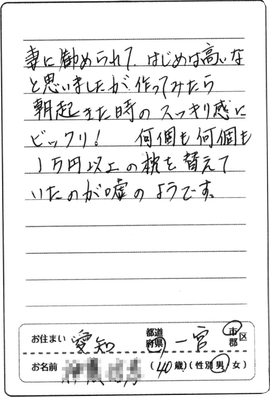 妻に勧められて、はじめは高いな
と思いましたが作ってみたら
朝起きた時のスッキリ感に
ビックリ！ 何個も何個も
1万円以上の枕を替えて
いたのが嘘のようです。
お住まい 愛知 都道府県 一宮 市区郡
お名前 (40歳)(性別 男 女)